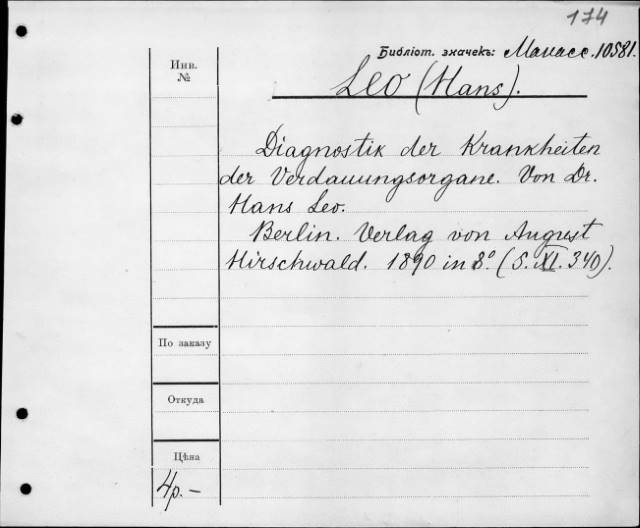 174
Библіот. значекъ: Манасс. 10581.
Инв. №
Leo (Hans).
Diagnostik der Krankheiten
der Verdauungsorgane. Von Dr.
Hans Leo.
Berlin. Verlag von August
Hirschwald. 1890 in 8º. (S. XI. 340).
По заказу
Откуда
Цѣна
4р.–